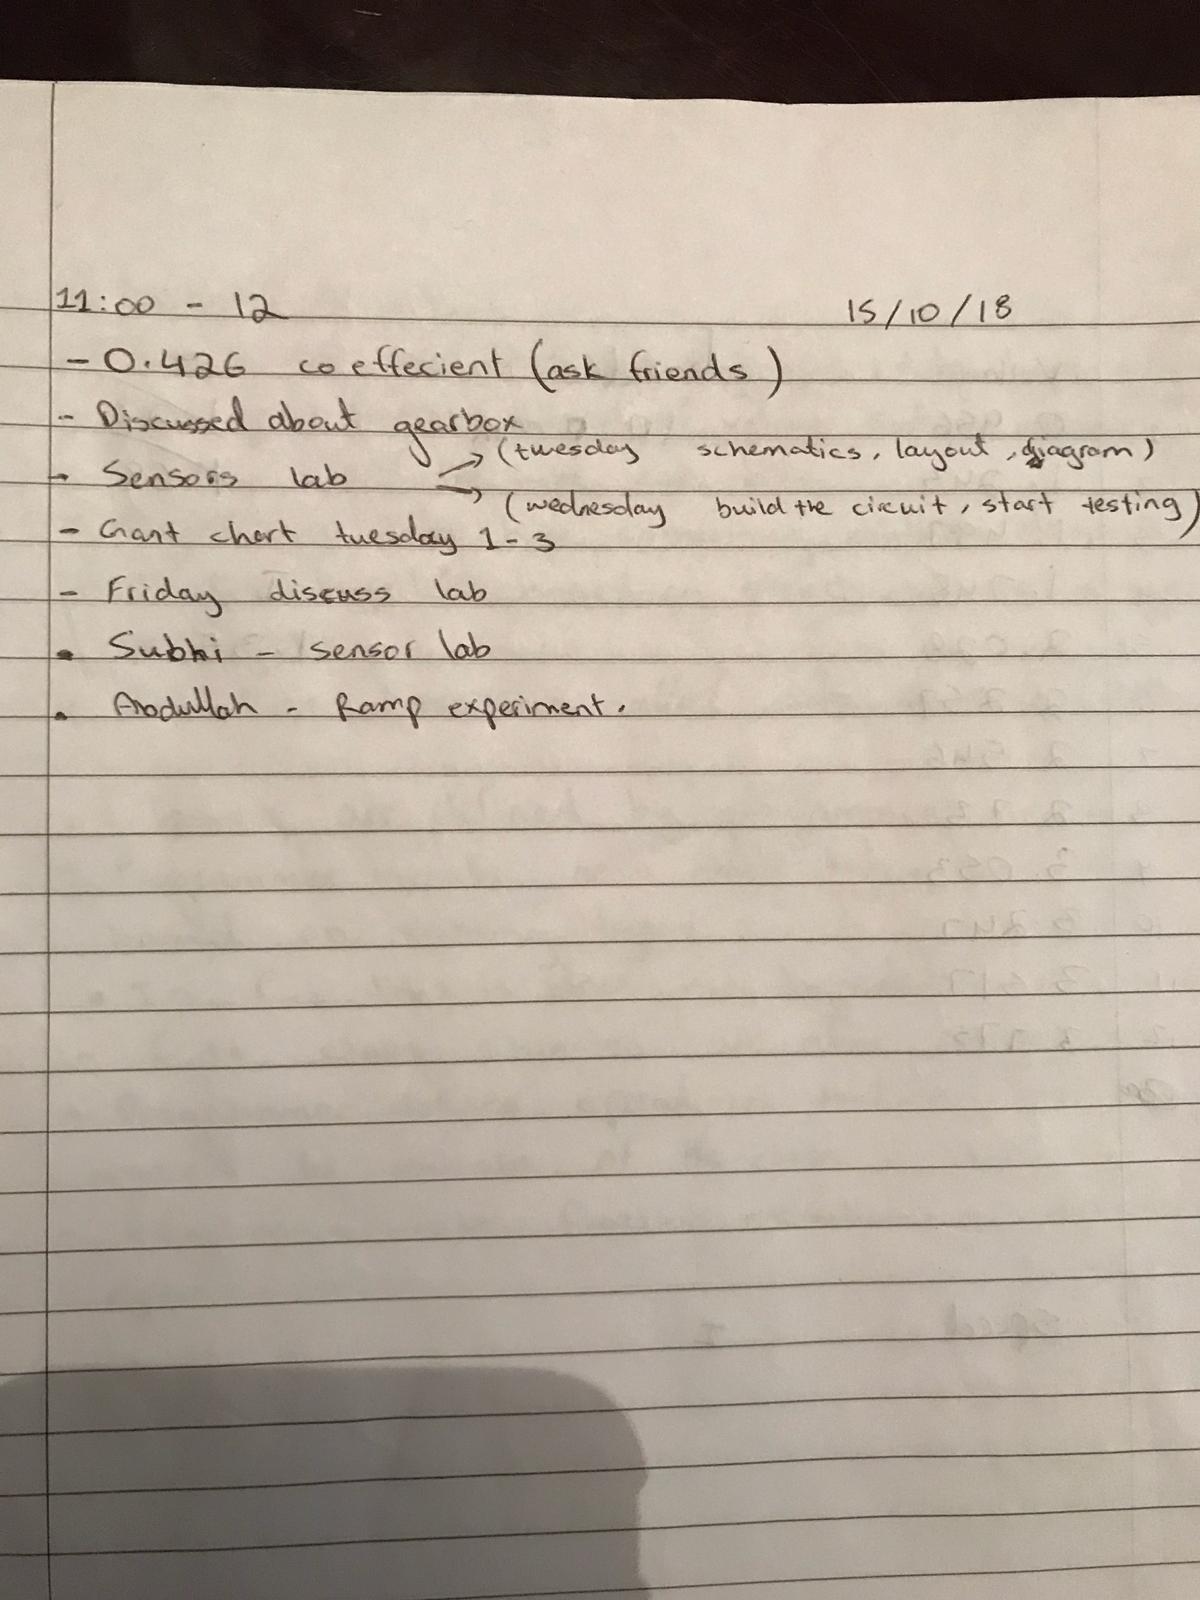 11:00 - 12 15/10/18
- 0.426 coeffecient (ask friends)
- Discussed about gearbox
(tuesday schematics, layout, diagram)
- Sensors lab
(wednesday build the circuit, start testing)
- Gant chart tuesday 1-3
- Friday discuss lab
• Subhi - sensor lab
• Abdullah - Ramp experiment.